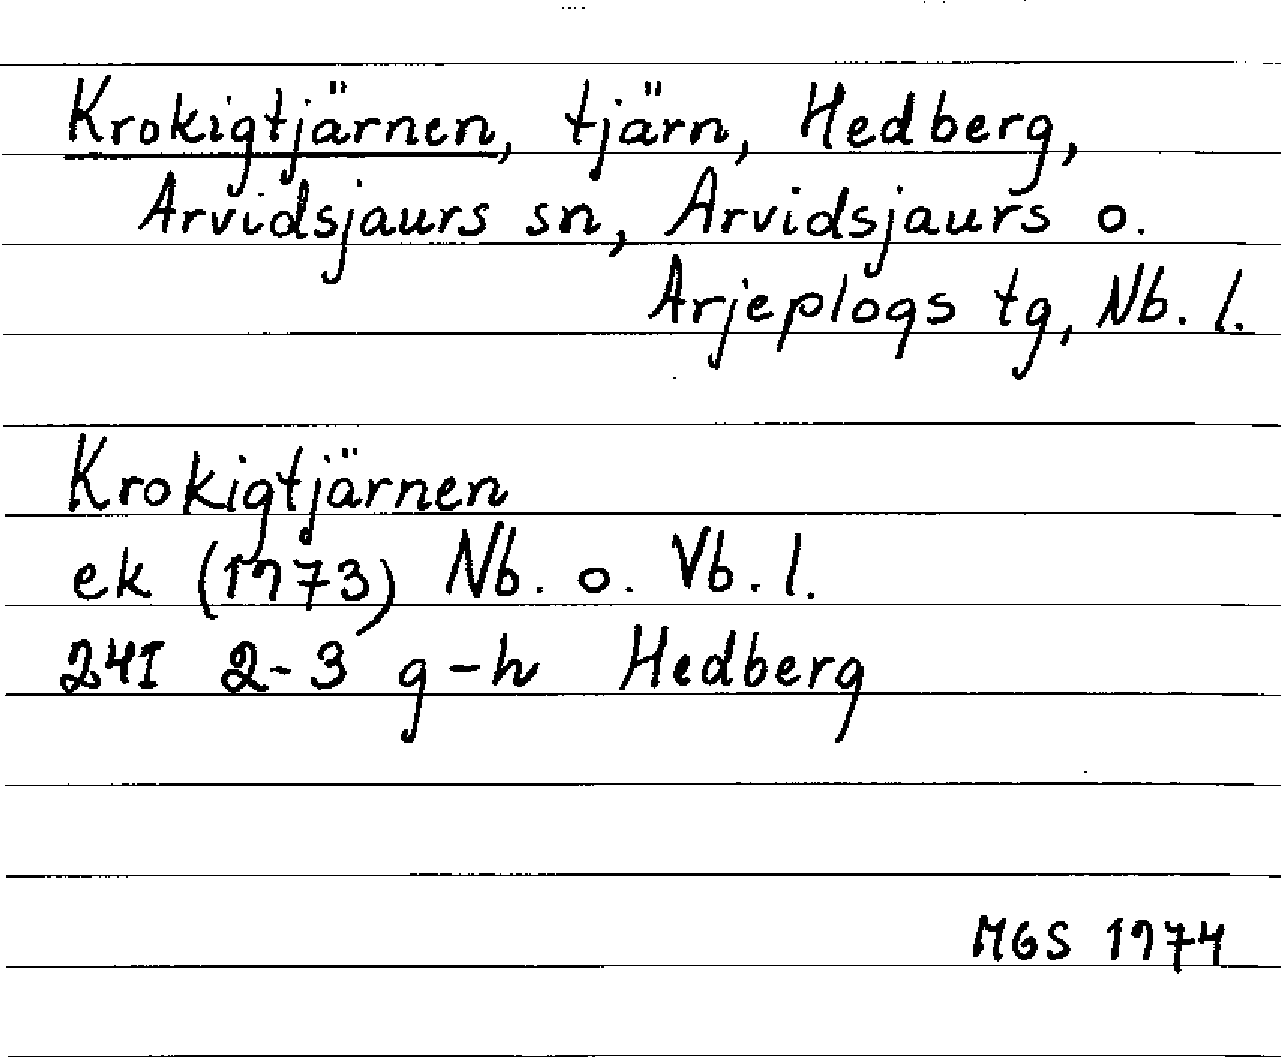 Krokigtjärnen, tjärn, Hedberg,
Arvidsjaurs sn, Arvidsjaurs o.
Arjeplogs tg, Nb. l.
Krokigtjärnen
ek (1973) Nb. o. Vb. l.
24I 2-3 g-h Hedberg
MGS 1974